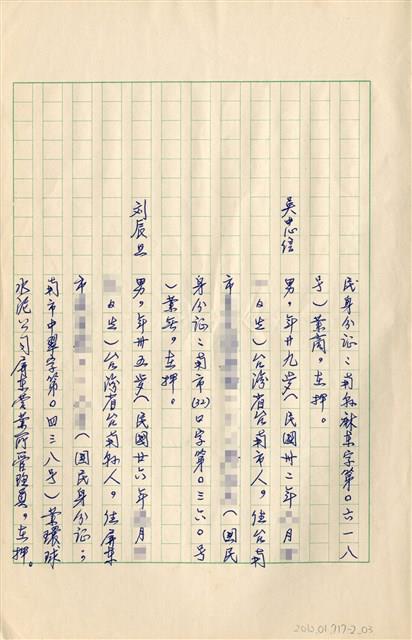 民身分证：南縣麻東字第〇六一八
号）業商，在押。
吳忠信 男，年卅九歲（民國廿二年 月
日生）台湾省台南市人，住台南
市 （國民
身分证：南市(32)口字第〇三六〇号
）業無，在押。
刘辰旦 男，年卅五歲（民國廿六年 月
日生）台湾省台南縣人，住屏東
市 （國民身分证：
南市中翠字第〇四三八号）業環球
水泥公司屏東营業所管理員，在押。
2010.01.717-2_03